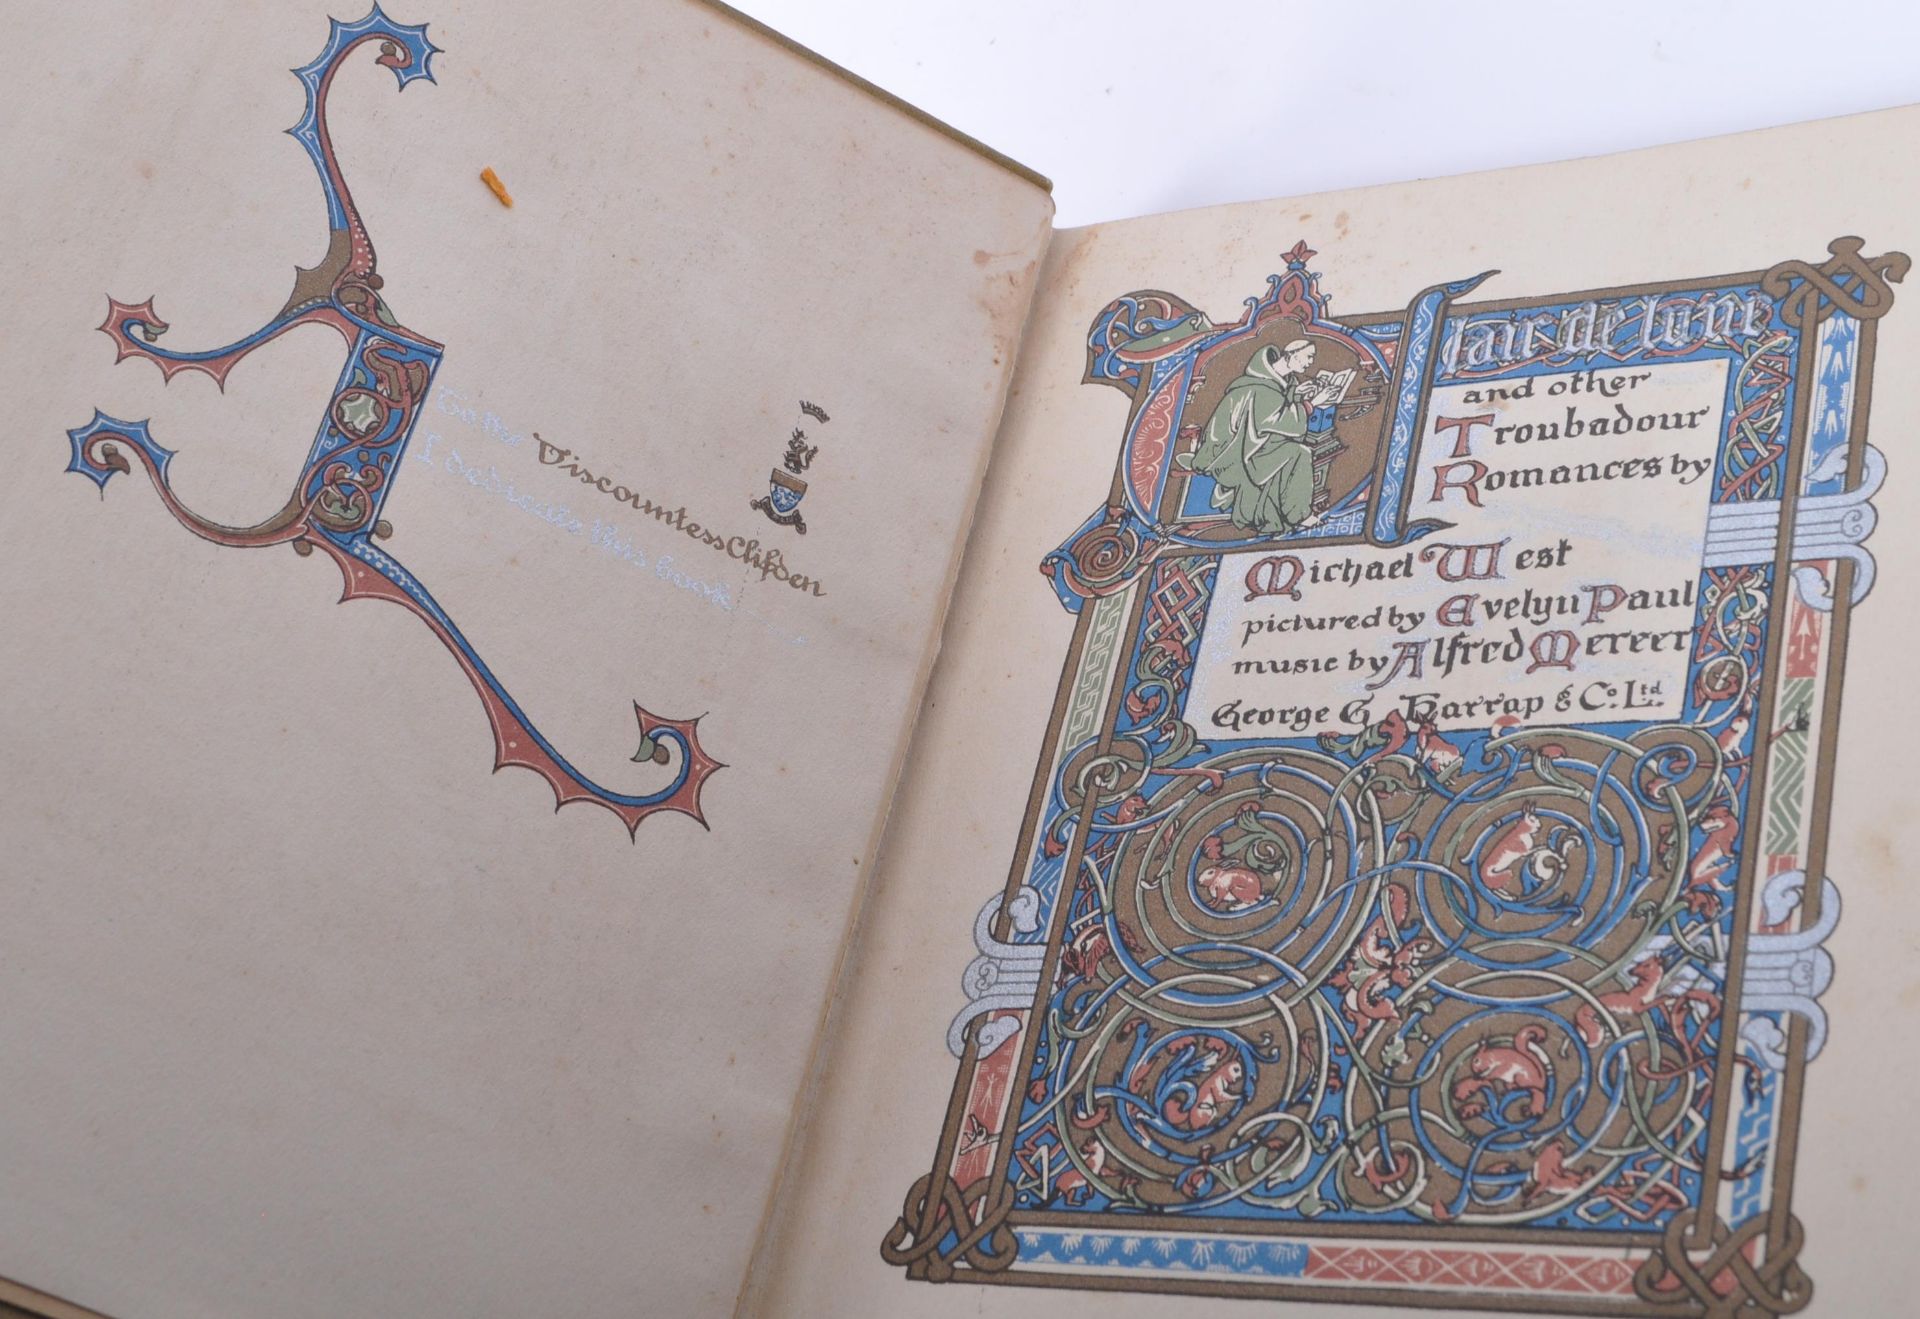 To the Viscountess Clifden
I dedicate this book
Clair de lune
and other
Troubadour
Romances by
Michael West
pictured by Evelyn Paul
music by Alfred Mercer
George G. Harrap & Co. Ltd.